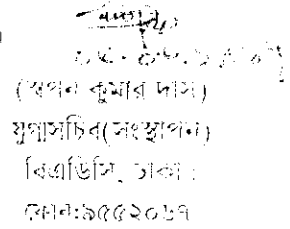 (স্বপন কুমার দাস)
যুগ্মসচিব(সংস্থাপন)
বিএডিসি, ঢাকা।
ফোন:৯৫৫২০৮৭